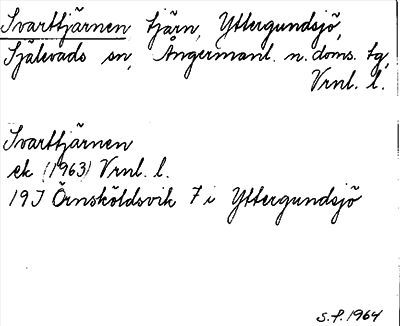 Svarttjärnen tjärn, Yttergundsjö,
Själevads sn, Ångermanl. n. doms. tg,
Vrnl. l.
Svarttjärnen
ek (1963) Vrnl. l.
19J Örnsköldsvik 7 i Yttergundsjö
S.F. 1964